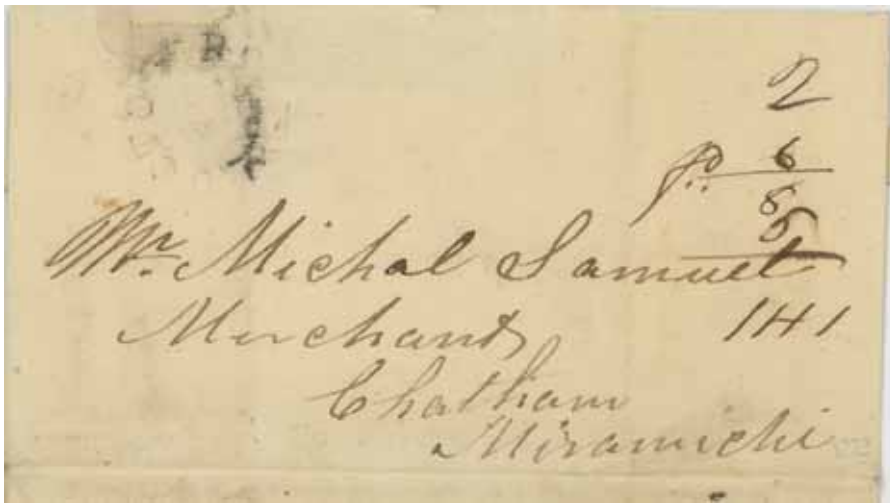 2
Pd. 6
8
5
Mr. Michal Samuel
Merchant
1H1
Chatham
Miramichi